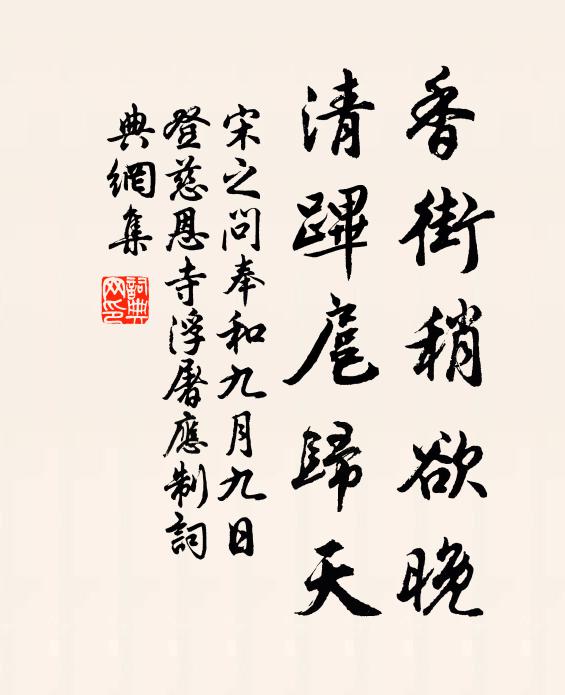 香街稍欲晚
清蹕扈歸天
宋之问奉和九月九日
登慈恩寺浮屠應制詞
典網集
詞典
网印